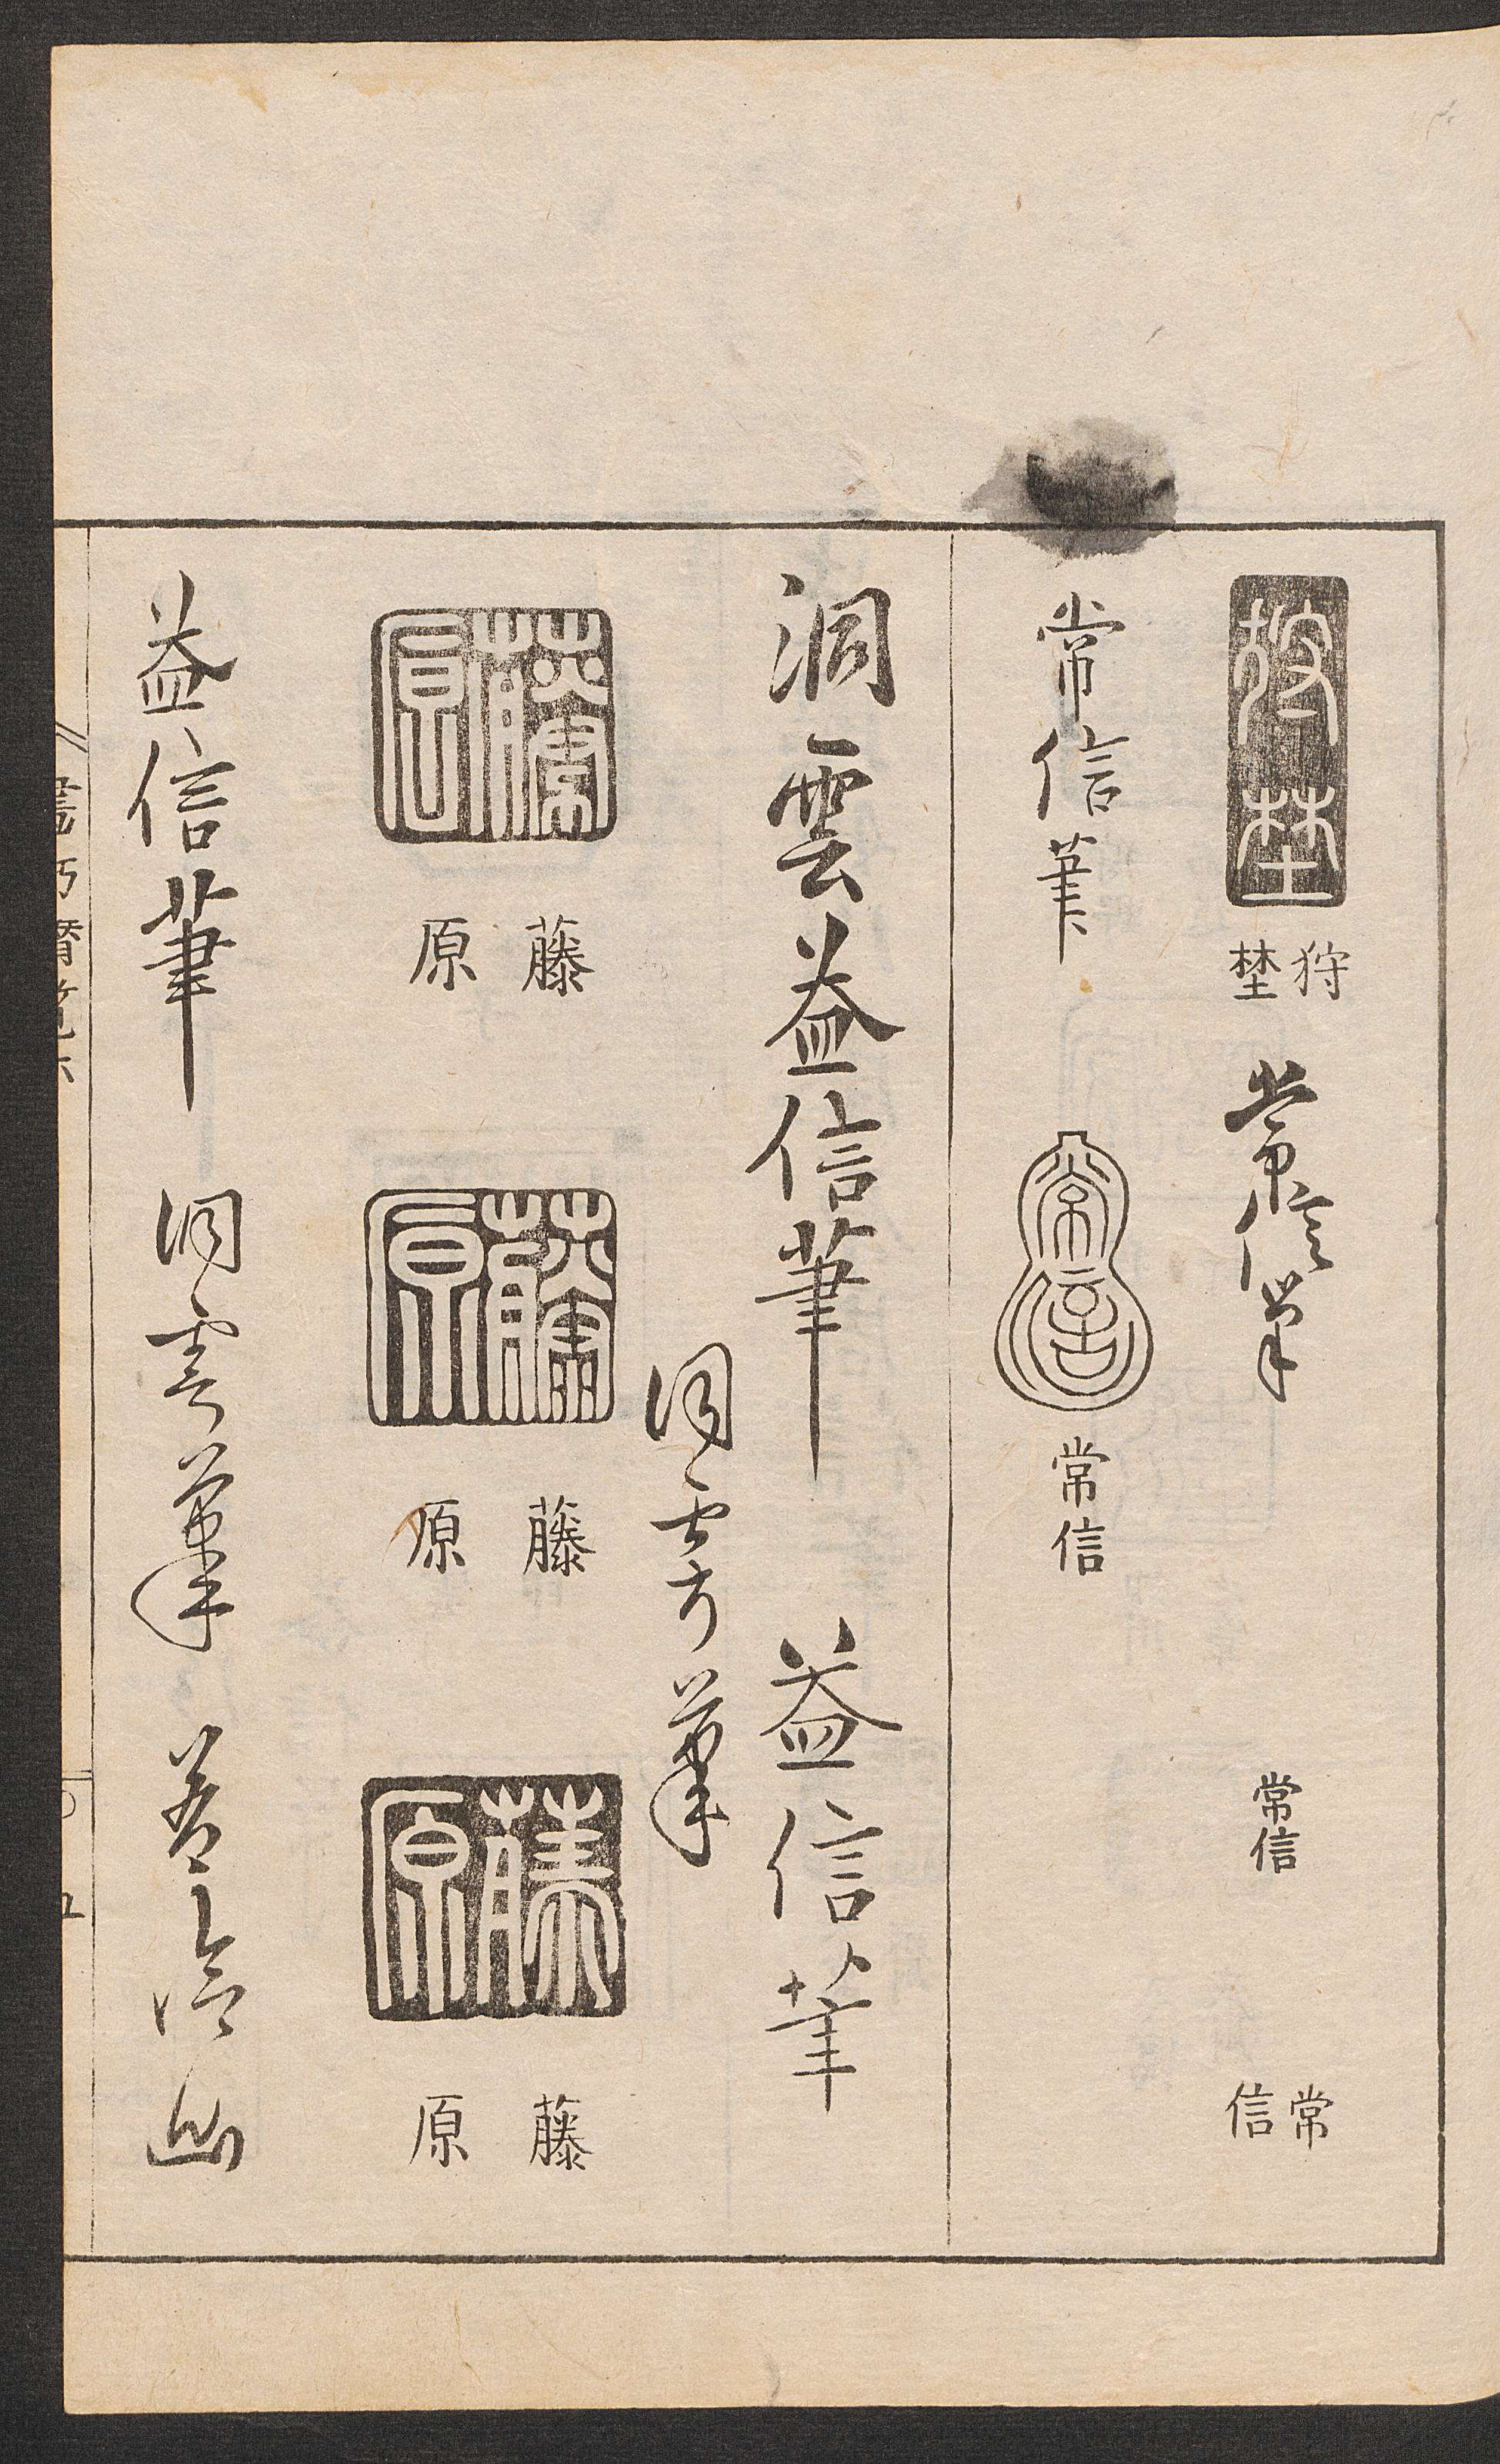 狩埜
狩
埜
常信筆
常信
常
信
常信筆
常信
常信
洞雲益信筆
益信筆
洞雲筆
藤原
藤
原
藤原
藤
原
藤原
藤
原
益信筆
洞雲筆
益信